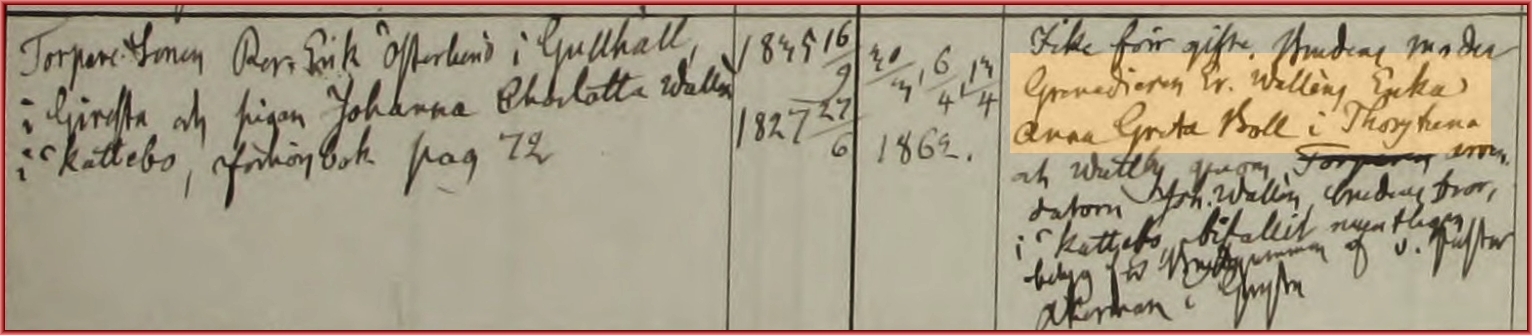 Torpare Sonen Per Erik Österlund i Gullhall,
i Girista och pigan Johanna Charlotta Wallén
i Kattebo, förhörsbok pag 72
1835 16/9
1827 27/6
30/3, 6/4, 13/4
1862.
Icke förr gifte. Brudens moder
Grenadieren Er. Walléns Enka
Anna Greta Boll i
och genom Torparen arren
datorn Joh. Wallén, brudens bror,
i Kattebo, bifallit
Brudgummen af v. Pastor
Åkerman i